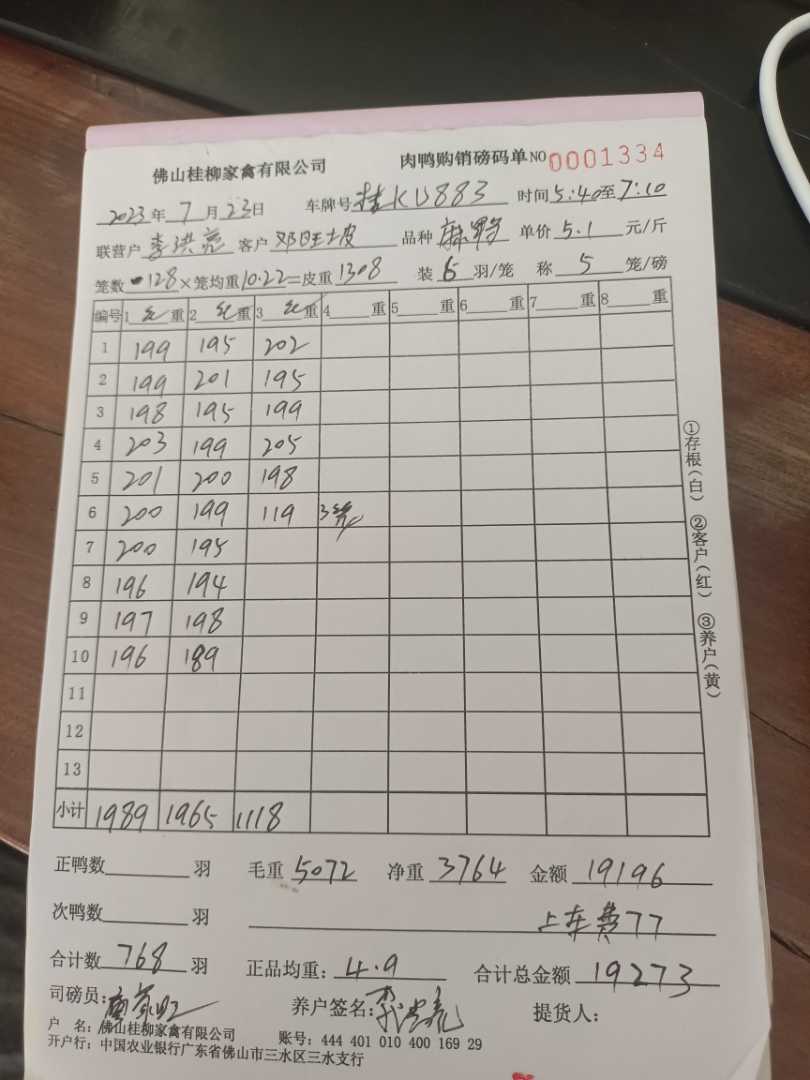 佛山桂柳家禽有限公司 肉鸭购销磅码单 NO 0001334
2023年7月23日 车牌号 桂KU883 时间5:40至7:10
联营户 李洪亮 客户 邓旺坡 品种 麻鸭 单价 5.1 元/斤
笼数 128×笼均重10.22=皮重 1308 装 6 羽/笼 称 5 笼/磅
编号 1 毛 重 2 毛 重 3 毛 重 4 重 5 重 6 重 7 重 8 重
1 199 195 202
2 199 201 195
3 198 195 199
4 203 199 205
5 201 200 198
6 200 199 119 3笼
7 200 195
8 196 194
9 197 198
10 196 189
11
12
13
小计 1989 1965 1118
①存根(白) ②客户(红) ③养户(黄)
正鸭数 羽 毛重 5072 净重 3764 金额 19196
次鸭数 羽 上车费77
合计数 768 羽 正品均重: 4.9 合计总金额 19273
司磅员: 养户签名: 提货人:
户 名: 佛山桂柳家禽有限公司 账号: 444 401 010 400 169 29
开户行: 中国农业银行广东省佛山市三水区三水支行